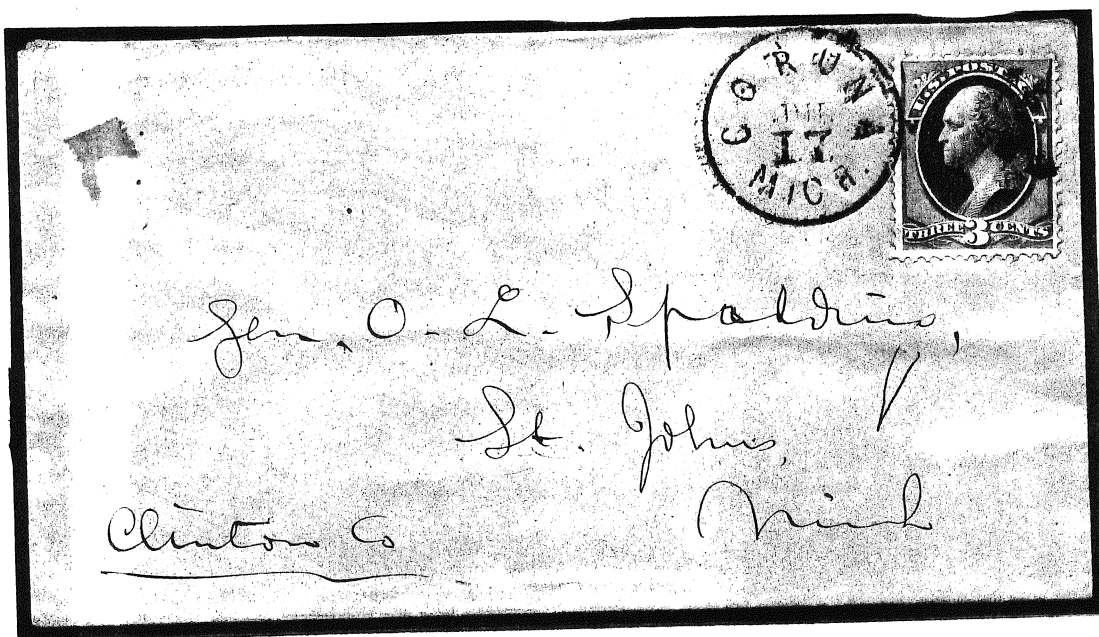 CORUNNA
17
MICH.
U.S. POSTAGE
THREE 3 CENTS
Gen. O. L. Spalding,
St. Johns,
Mich
Clinton Co